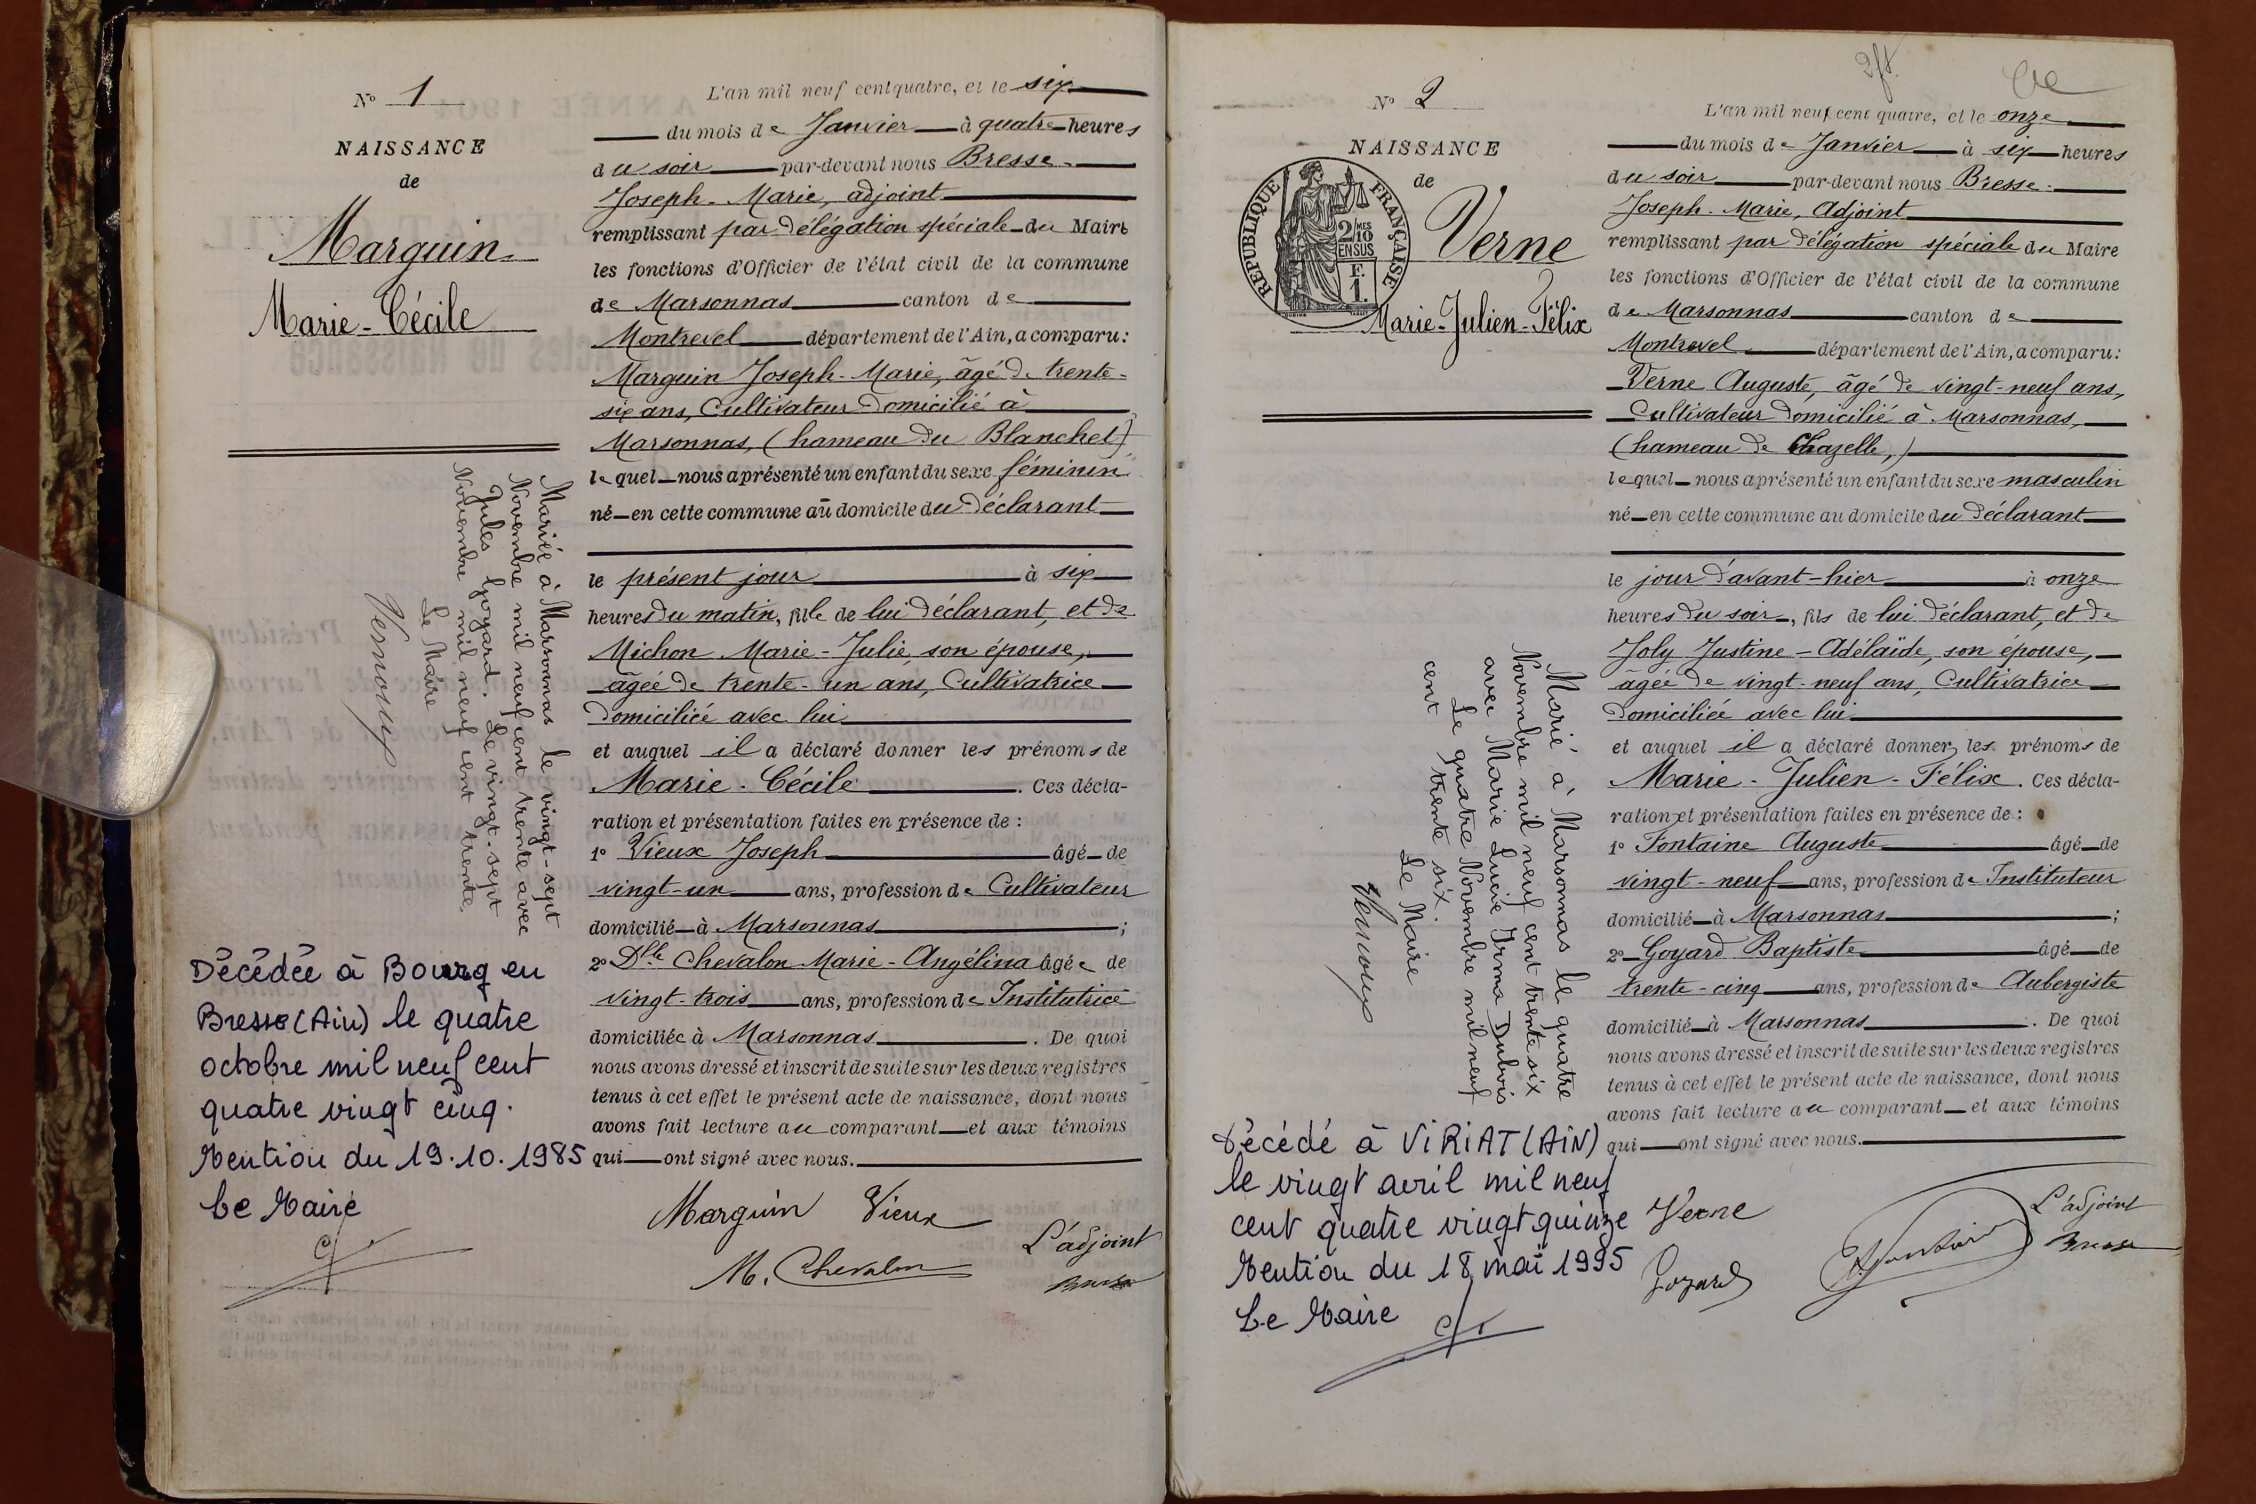 N° 1
NAISSANCE
de
Marguin
Marie-Cécile
Mariée à Marsonnas le vingt-sept
Novembre mil neuf cent trente avec
Jules Goyard. Le vingt-sept
Novembre mil neuf cent trente.
Le Maire
Vernoux
Décédée à Bourg en
Bresse (Ain) le quatre
octobre mil neuf cent
quatre vingt cinq.
Mention du 19.10.1985
Le Maire
L'an mil neuf cent quatre, et le six
du mois de Janvier à quatre heures
du soir par-devant nous Bresse
Joseph-Marie, adjoint
remplissant par délégation spéciale du Maire
les fonctions d'Officier de l'état civil de la commune
de Marsonnas canton de
Montrevel département de l'Ain, a comparu:
Marguin Joseph-Marie, âgé de trente-
six ans, Cultivateur domicilié à
Marsonnas, (hameau du Blanchet)
lequel nous a présenté un enfant du sexe féminin
né en cette commune au domicile du déclarant
le présent jour à six
heures du matin, fille de lui déclarant, et de
Michon Marie-Julie, son épouse,
âgée de trente-un ans, Cultivatrice
domiciliée avec lui
et auquel il a déclaré donner les prénoms de
Marie-Cécile. Ces décla-
ration et présentation faites en présence de :
1° Vieux Joseph âgé de
vingt-un ans, profession de Cultivateur
domicilié à Marsonnas ;
2° Dlle Chevalon Marie-Angélina âgée de
vingt-trois ans, profession de Institutrice
domiciliée à Marsonnas. De quoi
nous avons dressé et inscrit de suite sur les deux registres
tenus à cet effet le présent acte de naissance, dont nous
avons fait lecture au comparant et aux témoins
qui ont signé avec nous.
Marguin Vieux
L'adjoint
M. Chevalon Bresse
N° 2
NAISSANCE
de
REPUBLIQUE FRANÇAISE
2/10 MES
EN SUS
F.
1.
Verne
Marie-Julien-Félix
Marié à Marsonnas le quatre
Novembre mil neuf cent trente six
avec Marie Lucie Irma Dubois
Le quatre Novembre mil neuf
cent trente six.
Le Maire
Vernoux
Décédé à VIRIAT (AIN)
le vingt avril mil neuf
cent quatre vingt quinze
Mention du 18 mai 1995
Le Maire
L'an mil neuf cent quatre, et le onze
du mois de Janvier à six heures
du soir par-devant nous Bresse
Joseph-Marie, Adjoint
remplissant par délégation spéciale du Maire
les fonctions d'Officier de l'état civil de la commune
de Marsonnas canton de
Montrevel département de l'Ain, a comparu:
Verne Auguste, âgé de vingt-neuf ans,
Cultivateur domicilié à Marsonnas,
(hameau de Chazelle,)
lequel nous a présenté un enfant du sexe masculin
né en cette commune au domicile du déclarant
le jour d'avant-hier à onze
heures du soir, fils de lui déclarant, et de
Joly Justine-Adélaïde, son épouse,
âgée de vingt-neuf ans, Cultivatrice
domiciliée avec lui
et auquel il a déclaré donner les prénoms de
Marie-Julien-Félix. Ces décla-
ration et présentation faites en présence de :
1° Fontaine Auguste âgé de
vingt-neuf ans, profession de Instituteur
domicilié à Marsonnas ;
2° Goyard Baptiste âgé de
trente-cinq ans, profession de Aubergiste
domicilié à Marsonnas. De quoi
nous avons dressé et inscrit de suite sur les deux registres
tenus à cet effet le présent acte de naissance, dont nous
avons fait lecture au comparant et aux témoins
qui ont signé avec nous.
Verne
L'adjoint
Goyard Fontaine Bresse